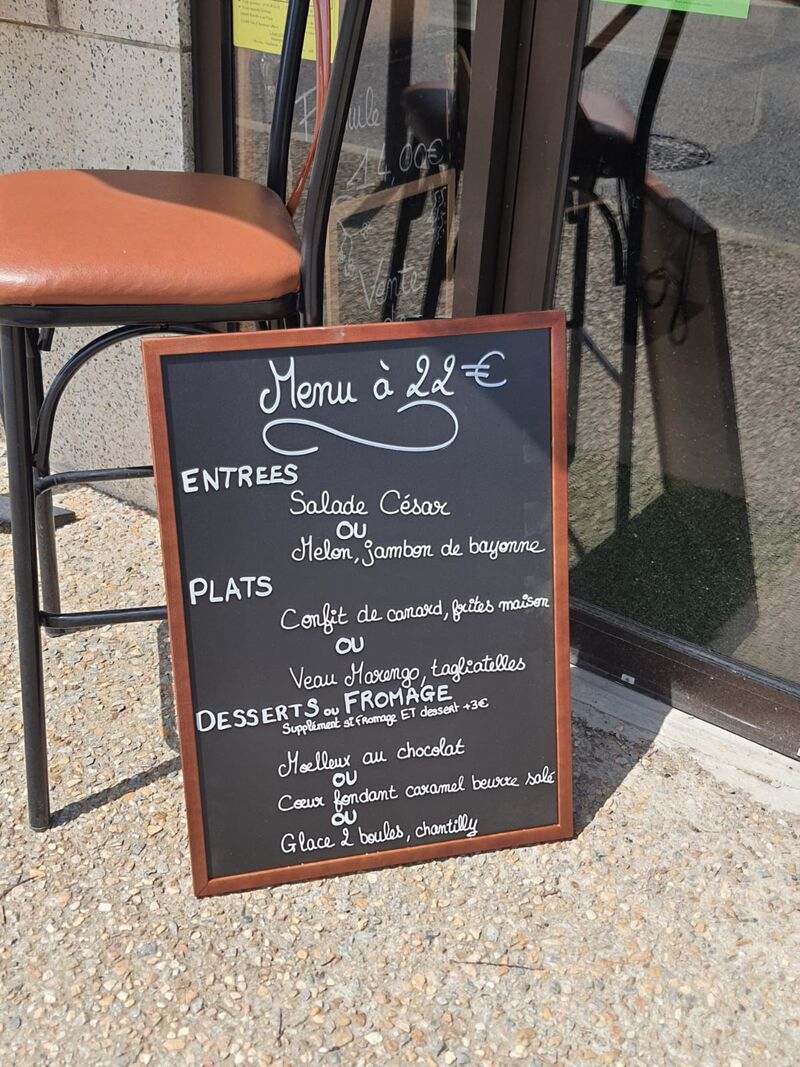 Formule
14,00€
Vente
Menu à 22€
ENTREES
Salade César
OU
Melon, jambon de bayonne
PLATS
Confit de canard, frites maison
OU
Veau Marengo, tagliatelles
DESSERTS OU FROMAGE
Supplément si fromage ET dessert +3€
Moelleux au chocolat
OU
Cœur fondant caramel beurre salé
OU
Glace 2 boules, chantilly